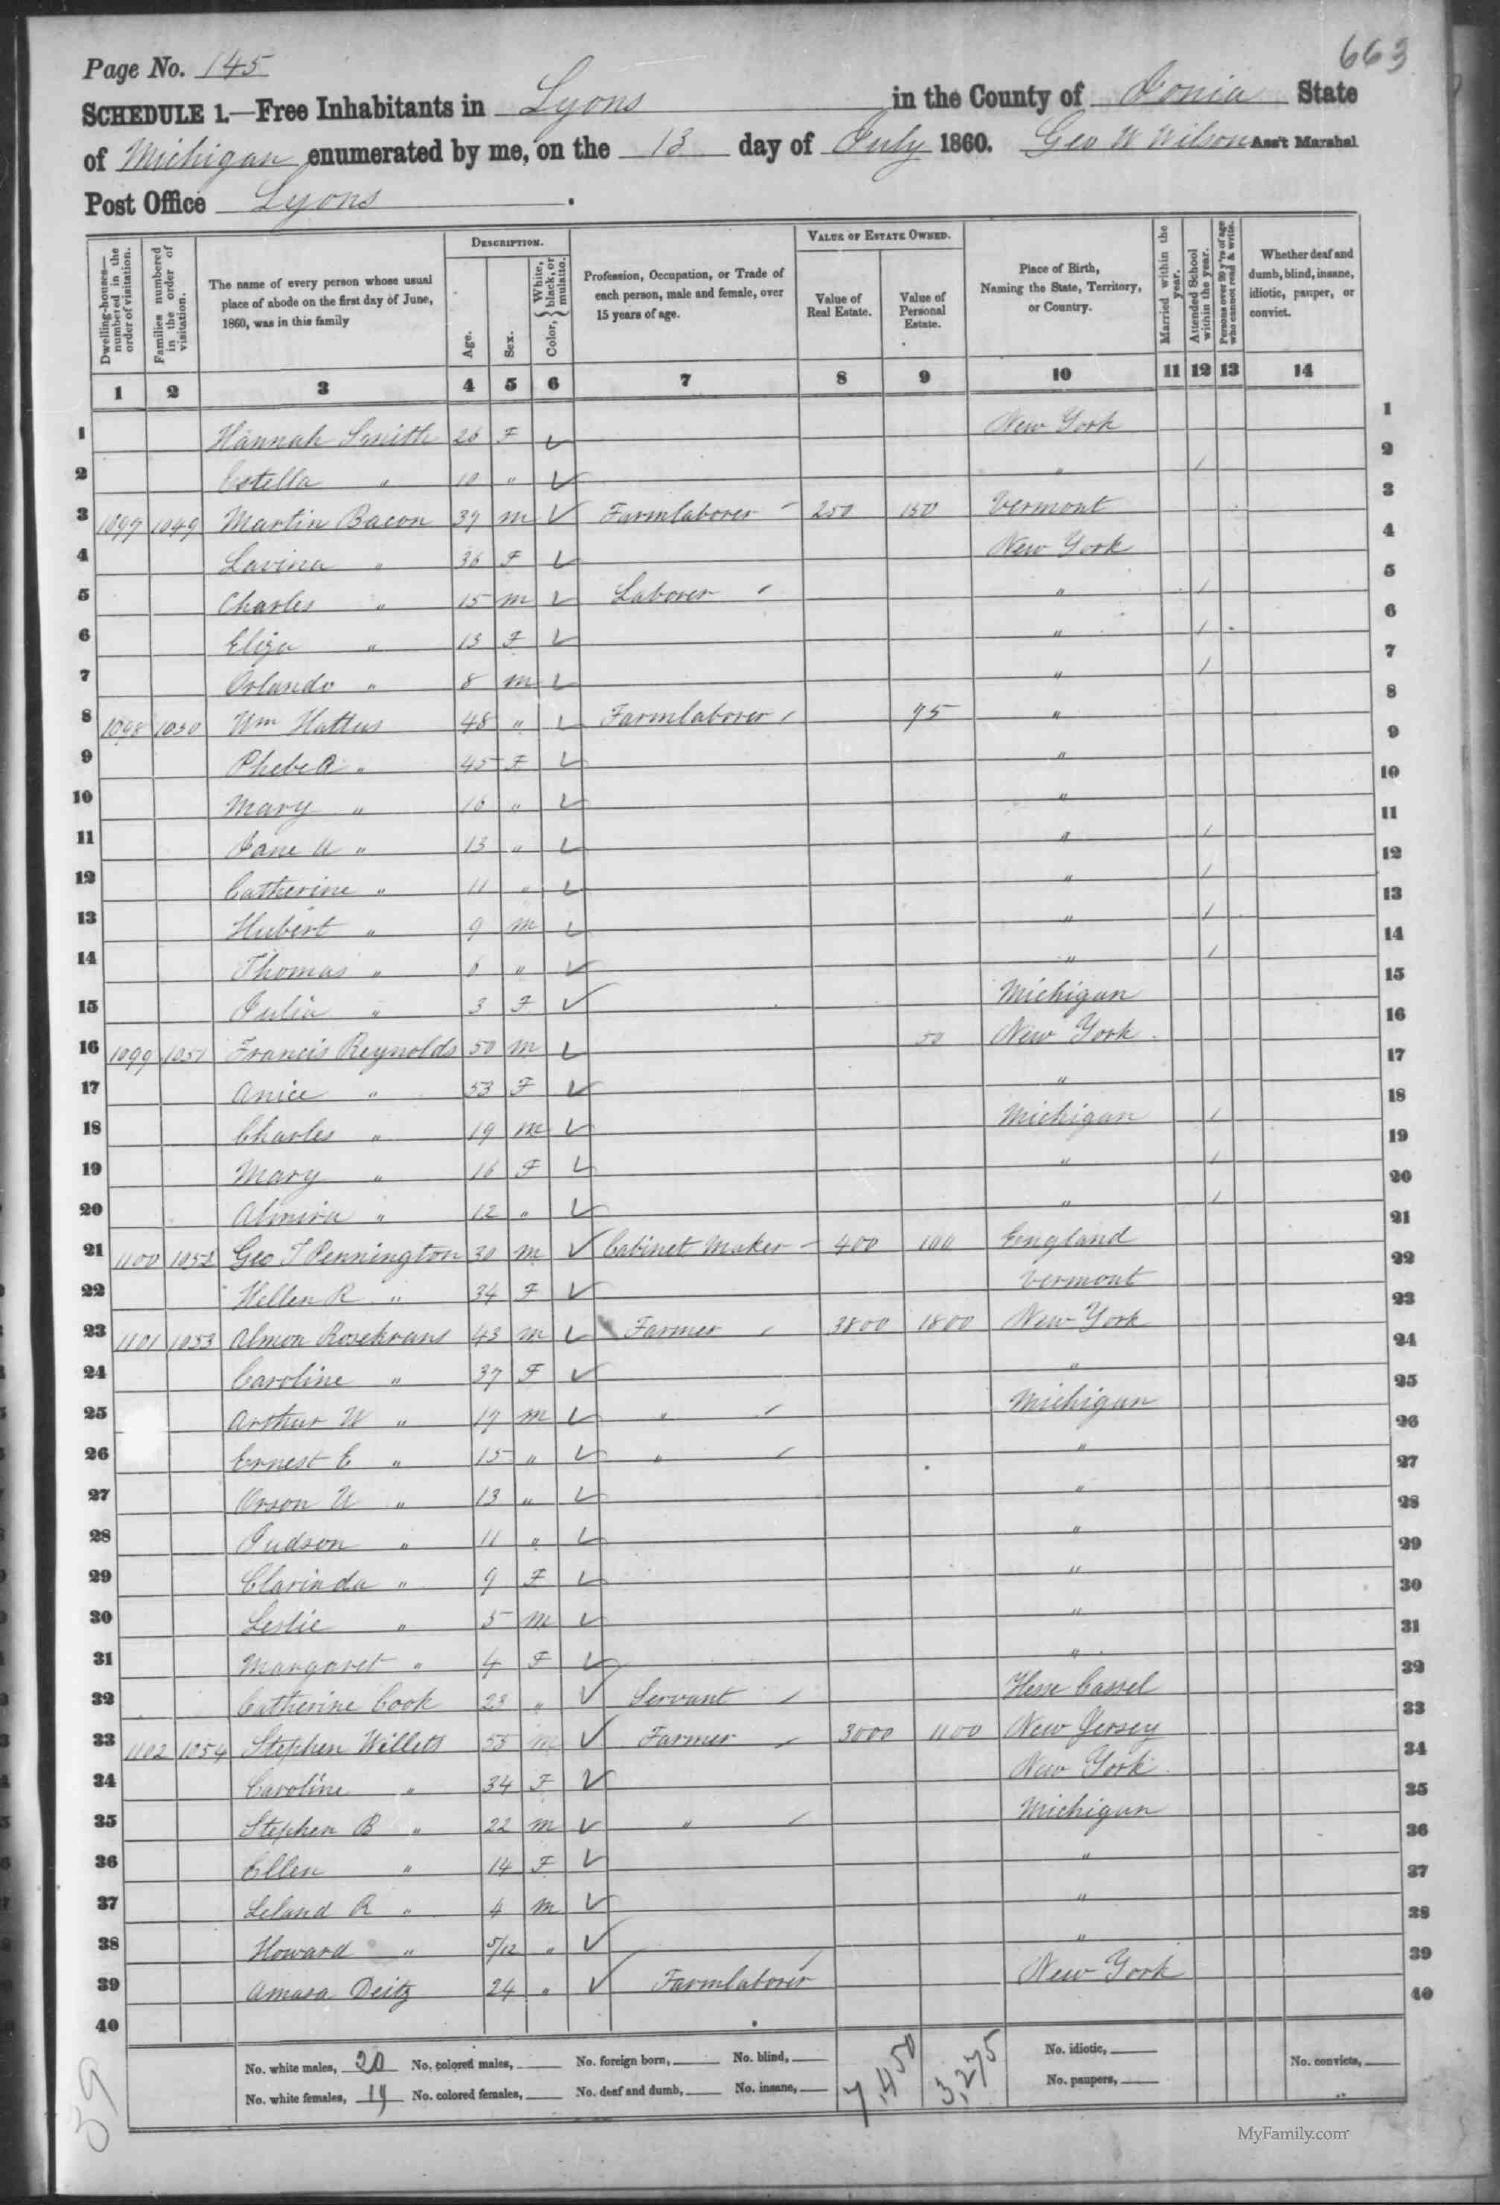 663
Page No. 145
SCHEDULE 1.—Free Inhabitants in Lyons in the County of Ionia State
of Michigan enumerated by me, on the 13 day of July 1860. Geo W Wilson Ass't Marshal
Post Office Lyons.
Dwelling-houses—numbered in the order of visitation.
Families numbered in the order of visitation.
The name of every person whose usual place of abode on the first day of June, 1860, was in this family
DESCRIPTION.
Age.
Sex.
Color, White, black, or mulatto.
Profession, Occupation, or Trade of each person, male and female, over 15 years of age.
VALUE OF ESTATE OWNED.
Value of Real Estate.
Value of Personal Estate.
Place of Birth, Naming the State, Territory, or Country.
Married within the year.
Attended School within the year.
Persons over 20 y'rs of age who cannot read & write.
Whether deaf and dumb, blind, insane, idiotic, pauper, or convict.
1 2 3 4 5 6 7 8 9 10 11 12 13 14
1 Hannah Smith 26 F New York 1
2 Estella " 10 " " / 2
3 1097 1049 Martin Bacon 37 m Farmlaborer 250 150 Vermont 3
4 Lavina " 36 F New York 4
5 Charles " 15 m Laborer " / 5
6 Eliza " 13 F " / 6
7 Orlando " 8 m " / 7
8 1098 1050 Wm Hattus 48 " Farmlaborer 75 " 8
9 Phebe A " 45 F " 9
10 Mary " 16 " " 10
11 Jane U " 13 " " / 11
12 Catherine " 11 " " / 12
13 Hubert " 9 m " / 13
14 Thomas " 6 " " / 14
15 Julia " 3 F Michigan 15
16 1099 1051 Francis Reynolds 50 m 50 New York 16
17 Anice " 53 F " 17
18 Charles " 19 m Michigan / 18
19 Mary " 16 F " / 19
20 Almira " 12 " " / 20
21 1100 1052 Geo T Pennington 30 m Cabinet Maker 400 100 England 21
22 Hellen R " 34 F Vermont 22
23 1101 1053 Almon Rosekrans 43 m Farmer 3800 1800 New York 23
24 Caroline " 37 F " 24
25 Arthur W " 17 m " Michigan 25
26 Ernest E " 15 " " " 26
27 Orson U " 13 " " 27
28 Judson " 11 " " 28
29 Clarinda " 9 F " 29
30 Leslie " 5 m " 30
31 Margaret " 4 F " 31
32 Catherine Cook 23 " Servant Hesse Cassel 32
33 1102 1054 Stephen Willets 55 m Farmer 3000 1100 New Jersey 33
34 Caroline " 34 F New York 34
35 Stephen B " 22 m " Michigan 35
36 Ellen " 14 F " 36
37 Leland R " 4 m " 37
38 Howard " 5/12 " " 38
39 Amasa Deitz 24 " Farmlaborer New York 39
40 40
No. white males, 20 No. colored males, No. foreign born, No. blind, 7,450 3,275 No. idiotic, No. convicts,
No. white females, 19 No. colored females, No. deaf and dumb, No. insane, No. paupers,
59
MyFamily.com